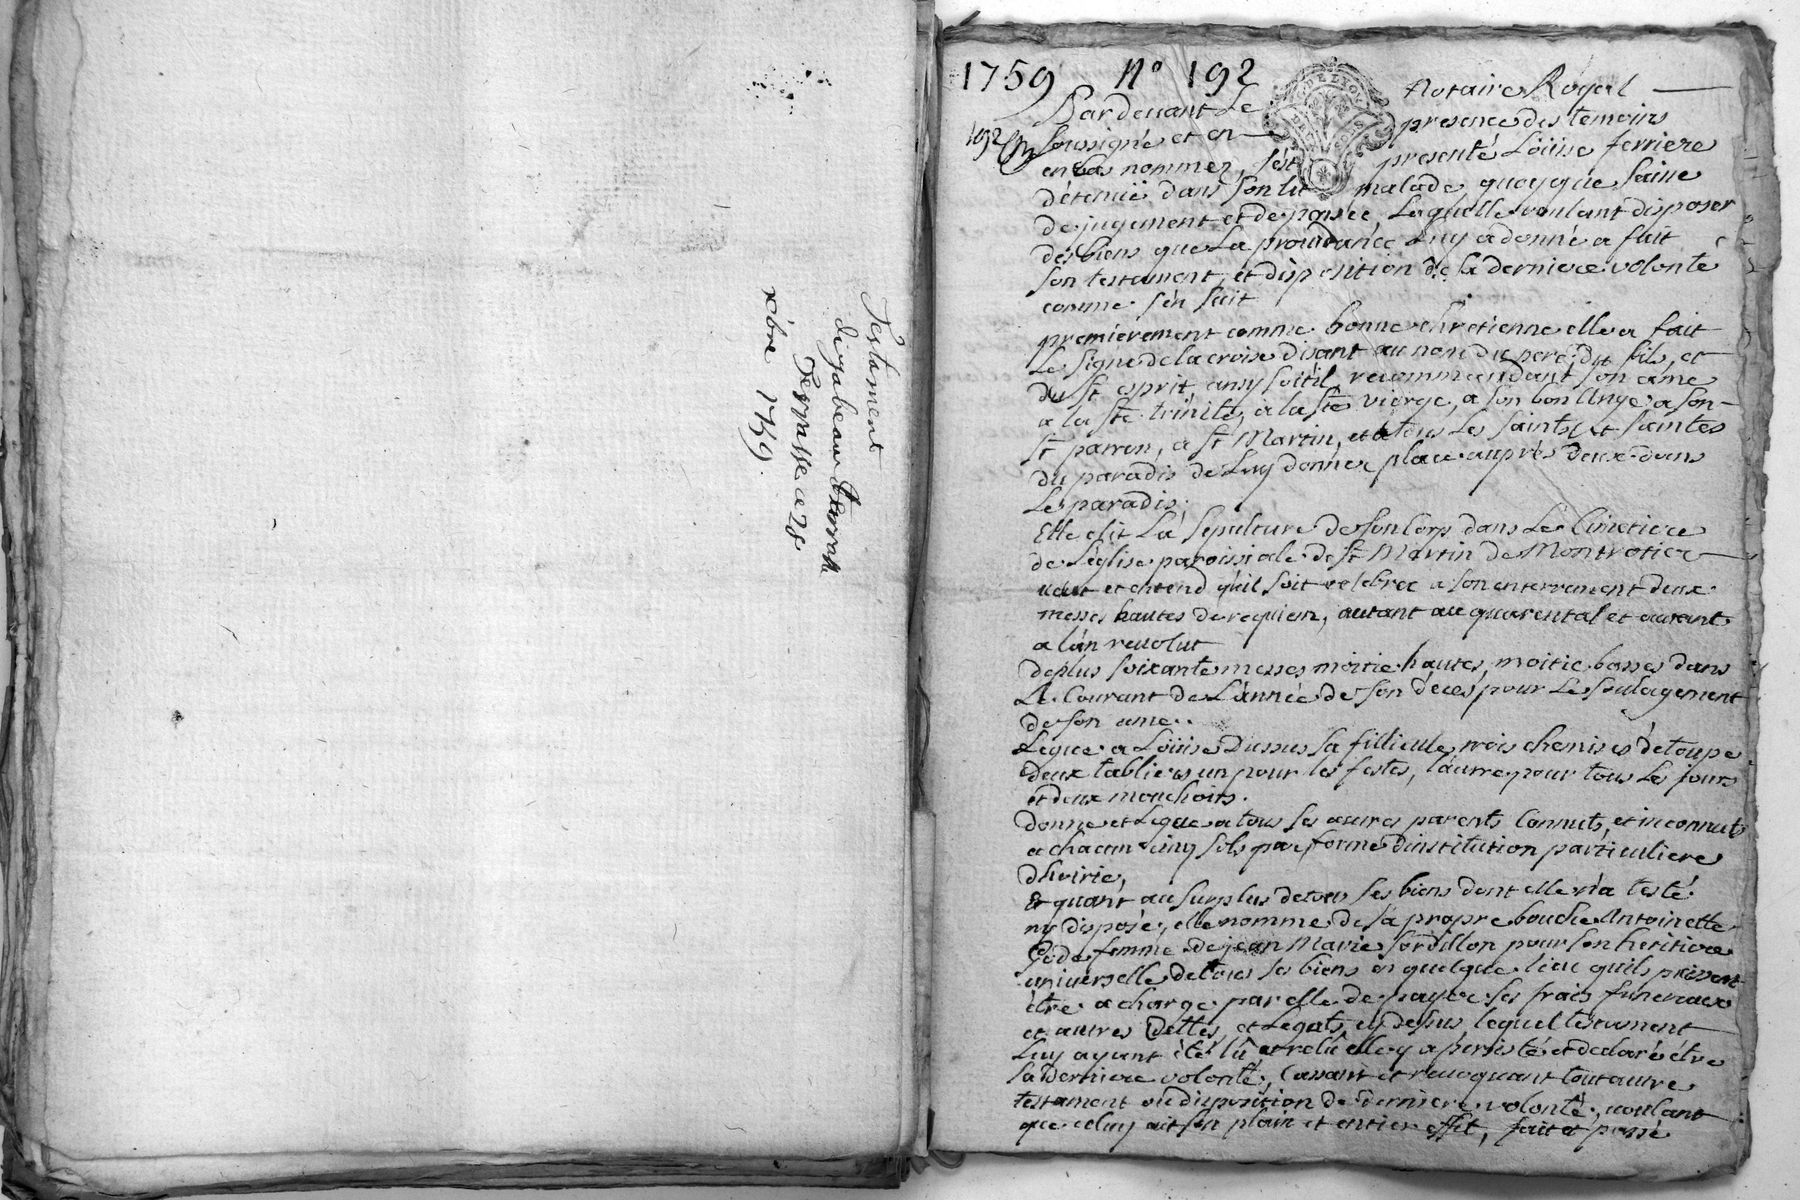 Testament
d'yzabeau terrasse
Terrasse a 28
xbre 1759.
1759 N° 192
192
Pardeuant Le Notaire Royal
soussigné et en presence des temoins
en bas nommez, s'est presenté Loüise ferriere
détenuë dans son lit malade quoyque saine
de jugement et de pensée Laquelle voulant disposer
des biens que La prouidance Luy a donné a fait
son testament, et disposition de sa derniere volonté
comme s'en suit
premierement comme bonne chretienne elle a fait
Le signe de la croix disant au nom du pere, du fils, et
du St esprit ainsy soit il, recommandant son ame
a la ste trinité, a la ste vierge, a son bon Ange a son
st patron, a st Martin, et a tous Les saints, et saintes
du paradis de Luy donner place aupres d'eux dans
Le paradis;
Elle elit La sepulture de son Corps dans Le Cimetiere
de L'eglise paroissiale de st Martin de Montrotier
ueut et entend qu'il soit celebrée a son enterrement deux
messes hautes de requiem, autant au quarental et autant
a l'an reuolut
de plus soixante messes moitie hautes, moitie basses dans
Le Courant de L'année de son décés pour Le soulagement
de son ame.
Legue a Loüise Dussus sa fillieule trois chemises d'etoupe
deux tabliers un pour les festes, l'autre pour tous Les jours
et deux mouchoirs.
donne et Legue a tous ses autres parents Connuts, et inconnuts
a chacun cinq sols par forme d'institution particuliere
d'hoirie,
Et quant au surplus de tous ses biens dont elle n'a testé
ny disposé, elle nomme de sa propre bouche Antoinette
femme de jean Marie Sordillon pour son heritiere
universelle de tous ses biens en quelque lieu qu'ils puissent
étre a charge par elle de payer ses frais funeraux
et autres dettes, et Legats, cy dessus lequel testament
Luy ayant été lû et relû elle y a persisté et declaré étre
sa derniere volonté, Cassant et reuoquant tout autre
testament ou disposition de derniere volonté, uoulant
que celuy ait son plain et entier effet, fait et passé